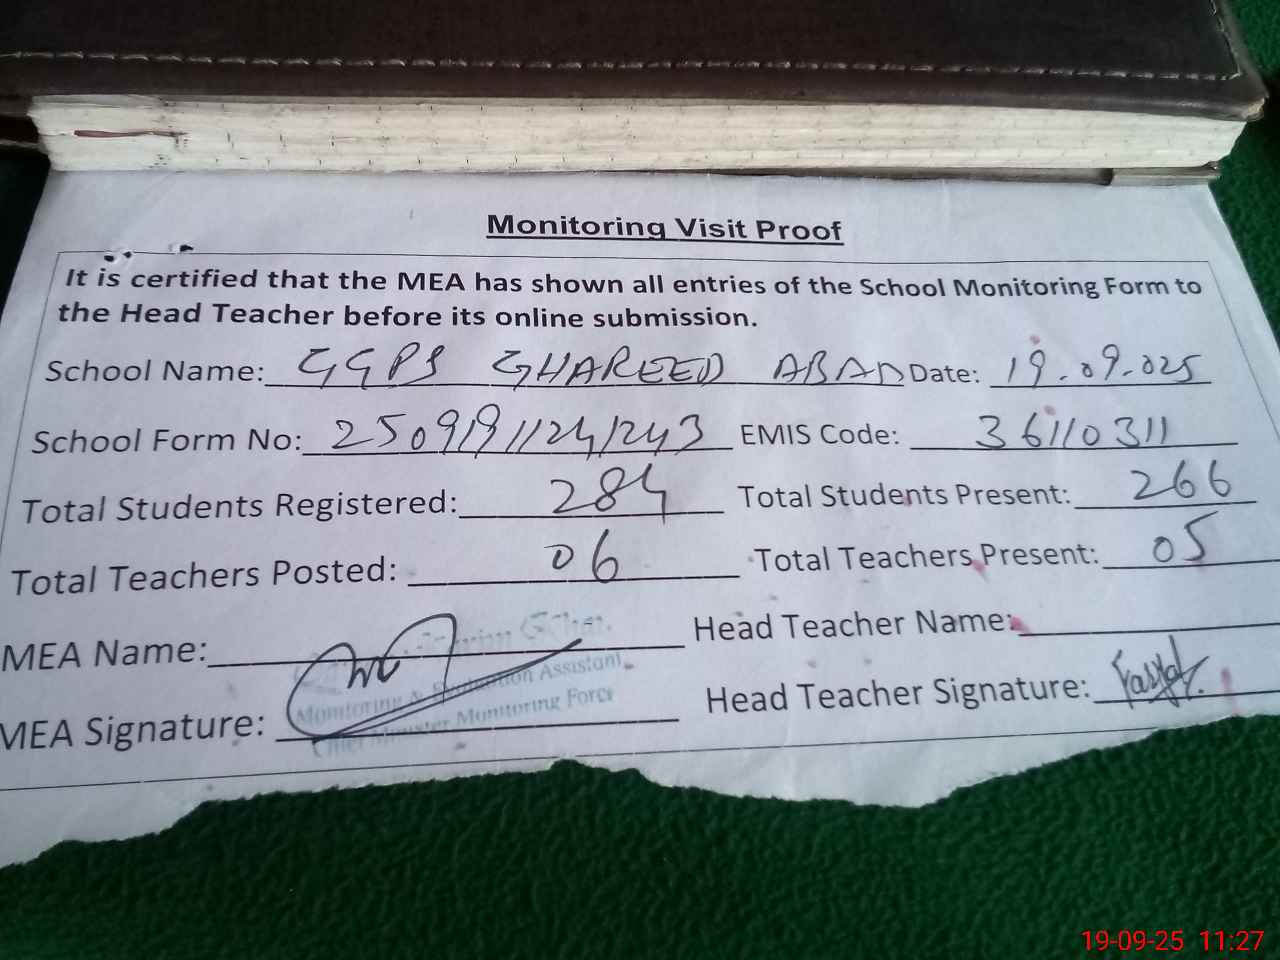 Monitoring Visit Proof
It is certified that the MEA has shown all entries of the School Monitoring Form to
the Head Teacher before its online submission.
School Name: GGPS GHAREED ABAD Date: 19-09-025
School Form No: 25091911241243 EMIS Code: 36110311
Total Students Registered: 284 Total Students Present: 266
Total Teachers Posted: 06 Total Teachers Present: 05
MEA Name: Head Teacher Name:
Monitoring & Evaluation Assistant
MEA Signature: Head Teacher Signature:
Chief Minister Monitoring Force
19-09-25 11:27